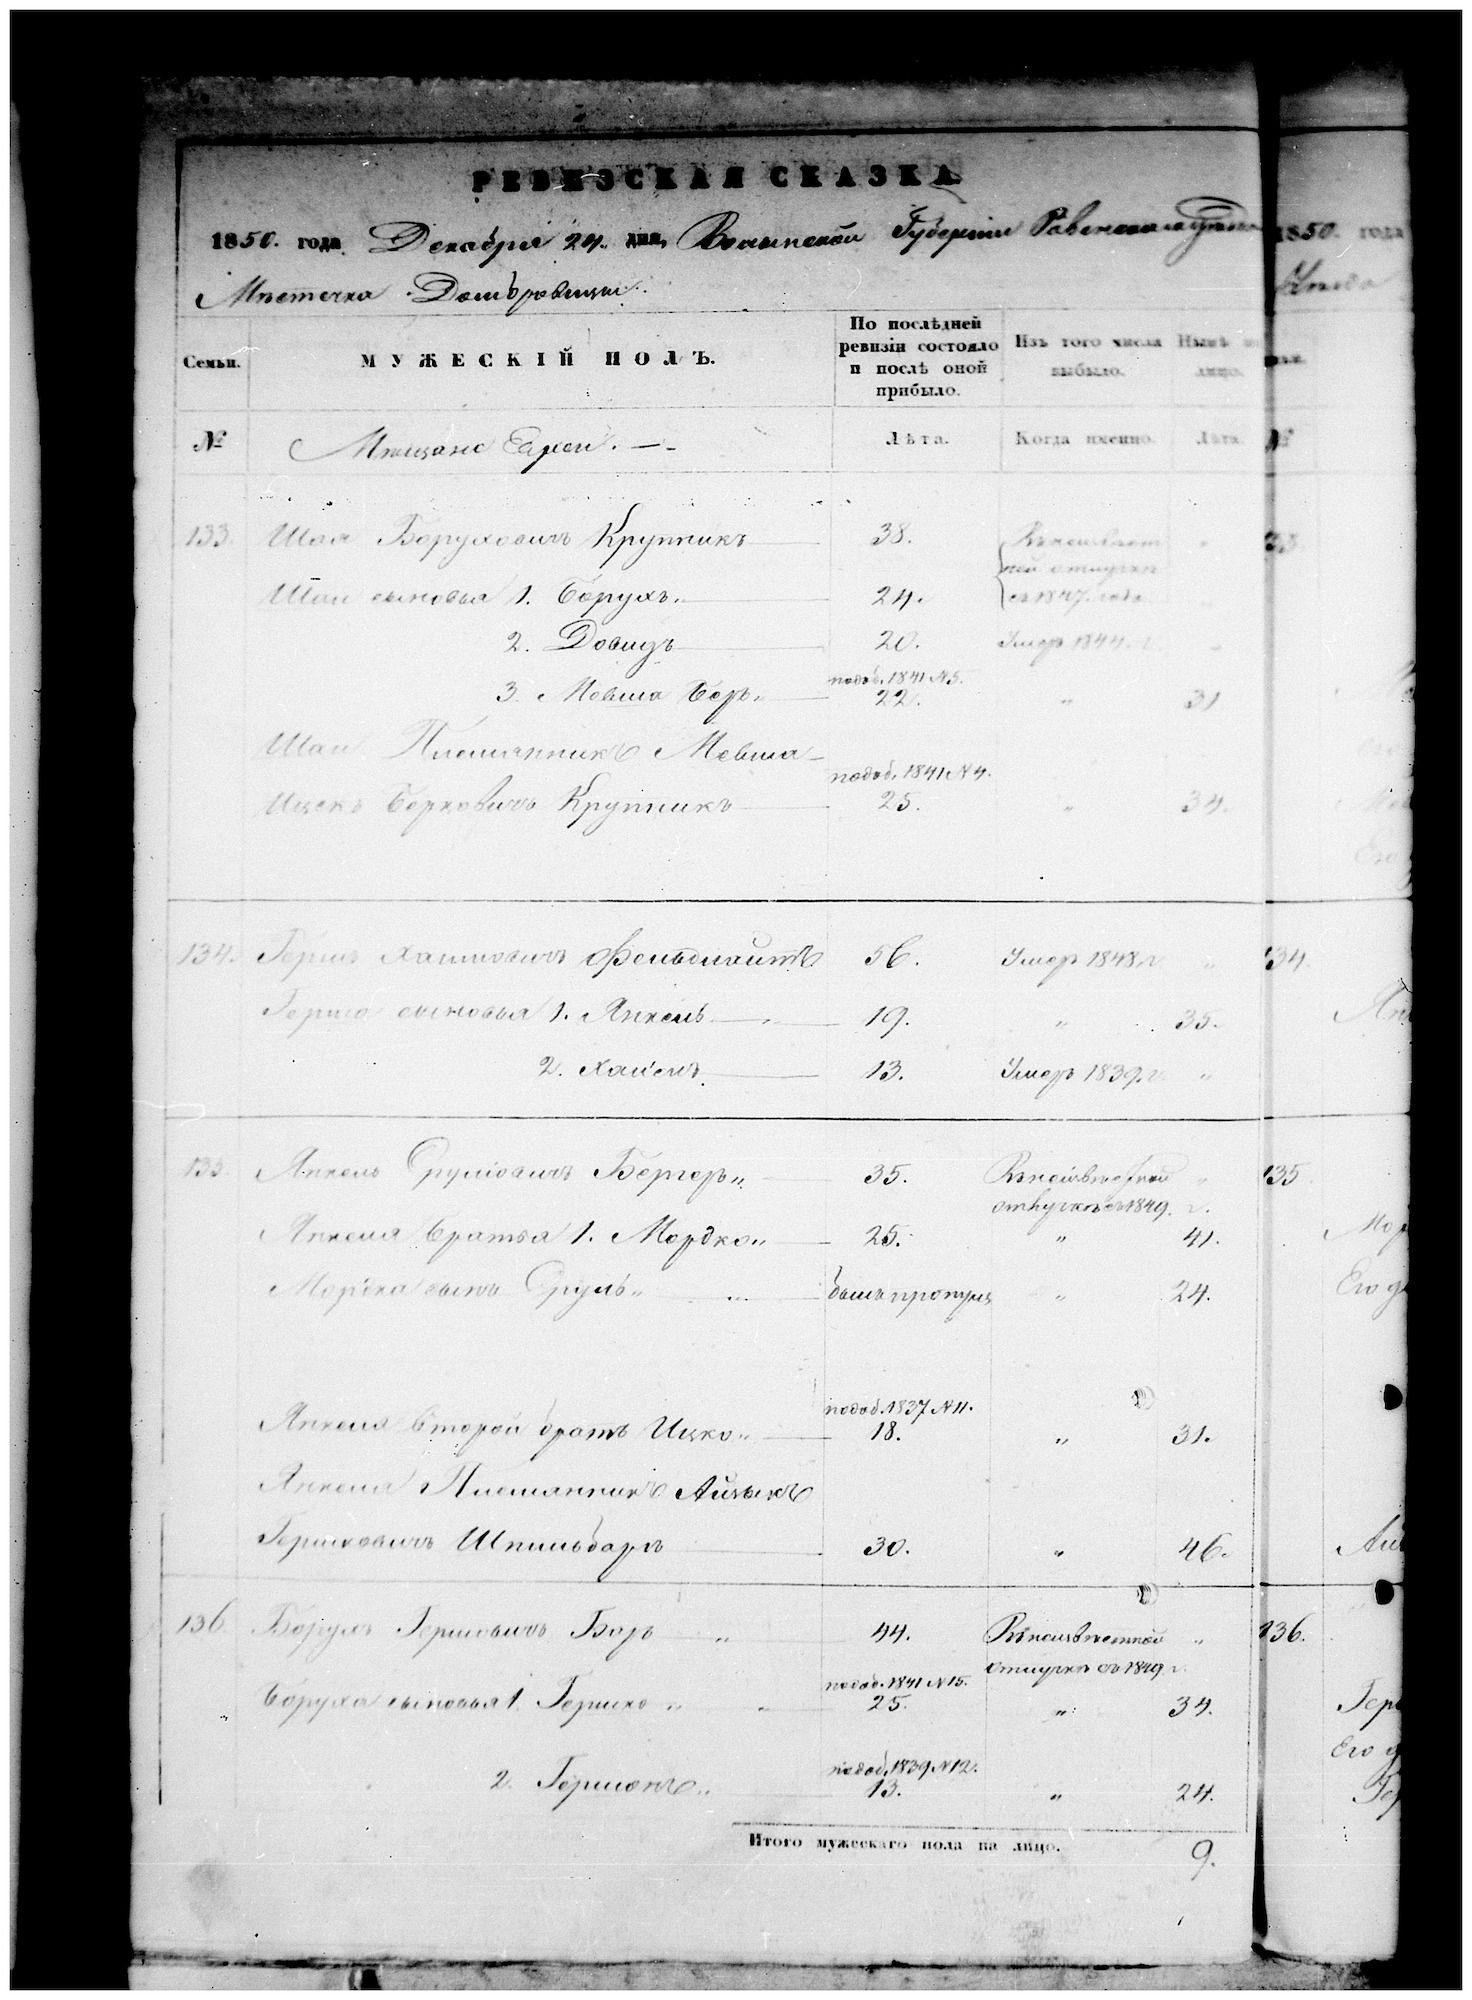 РЕВИЗСКАЯ СКАЗКА
1850. года Декабря 24. дня, Волынской Губернiи Ровенскаго Уѣзда
Мѣстечка Домбровицы.
Семьи.
МУЖЕСКIЙ ПОЛЪ.
По послѣдней
ревизiи состояло
и послѣ оной
прибыло.
Изъ того числа
выбыло.
Нынѣ на
лицо.
№
Мѣщане Евреи.
Лѣта.
Когда именно.
Лѣта.
133. Шая Боруховичъ Крупникъ 38. Въ неизвѣст
ной отлучкѣ
съ 1847. года „
Шаи сыновья 1. Борухъ. 24. „
2. Довидъ 20. Умеръ 1844. г. „
подоб. 1841 №5.
3. Мовша Беръ„ 22. „ 31
Шаи Племянникъ Мовша
подоб. 1841 №4.
Ицекъ Берковичъ Крупникъ 25. „ 34.
134. Гершъ Хаимовичъ Фельдмантъ 56. Умеръ 1848. г „
Герша сыновья 1. Янкель 19. „ 35.
2. Хаимъ 13. Умеръ 1839. г. „
135. Янкель Сруліовичъ Бергеръ„ 35. Въ неизвѣстной „
отлучкѣ съ 1849. г.
Янкеля братья 1. Мордко„ 25. „ 41.
Мордка сынъ Сруль„ „ былъ пропущ „ 24.
подоб. 1837 №11.
Янкеля второй братъ Ицко„ 18. „ 31.
Янкеля Племянникъ Айзыкъ
Гершковичъ Шпильбаръ 30. „ 46.
136. Борухъ Гершовичъ Боръ „ 44. Въ неизвѣстной „
отлучкѣ съ 1849. г.
подоб. 1841 №15.
Боруха сыновья 1. Гершко „ „ 25. „ 34.
подоб. 1839 №12.
2. Гершонъ„ 13. „ 24.
Итого мужескаго пола на лицо. 9.
1850. года
№
134
135
Мор
Его д
136.
Его д